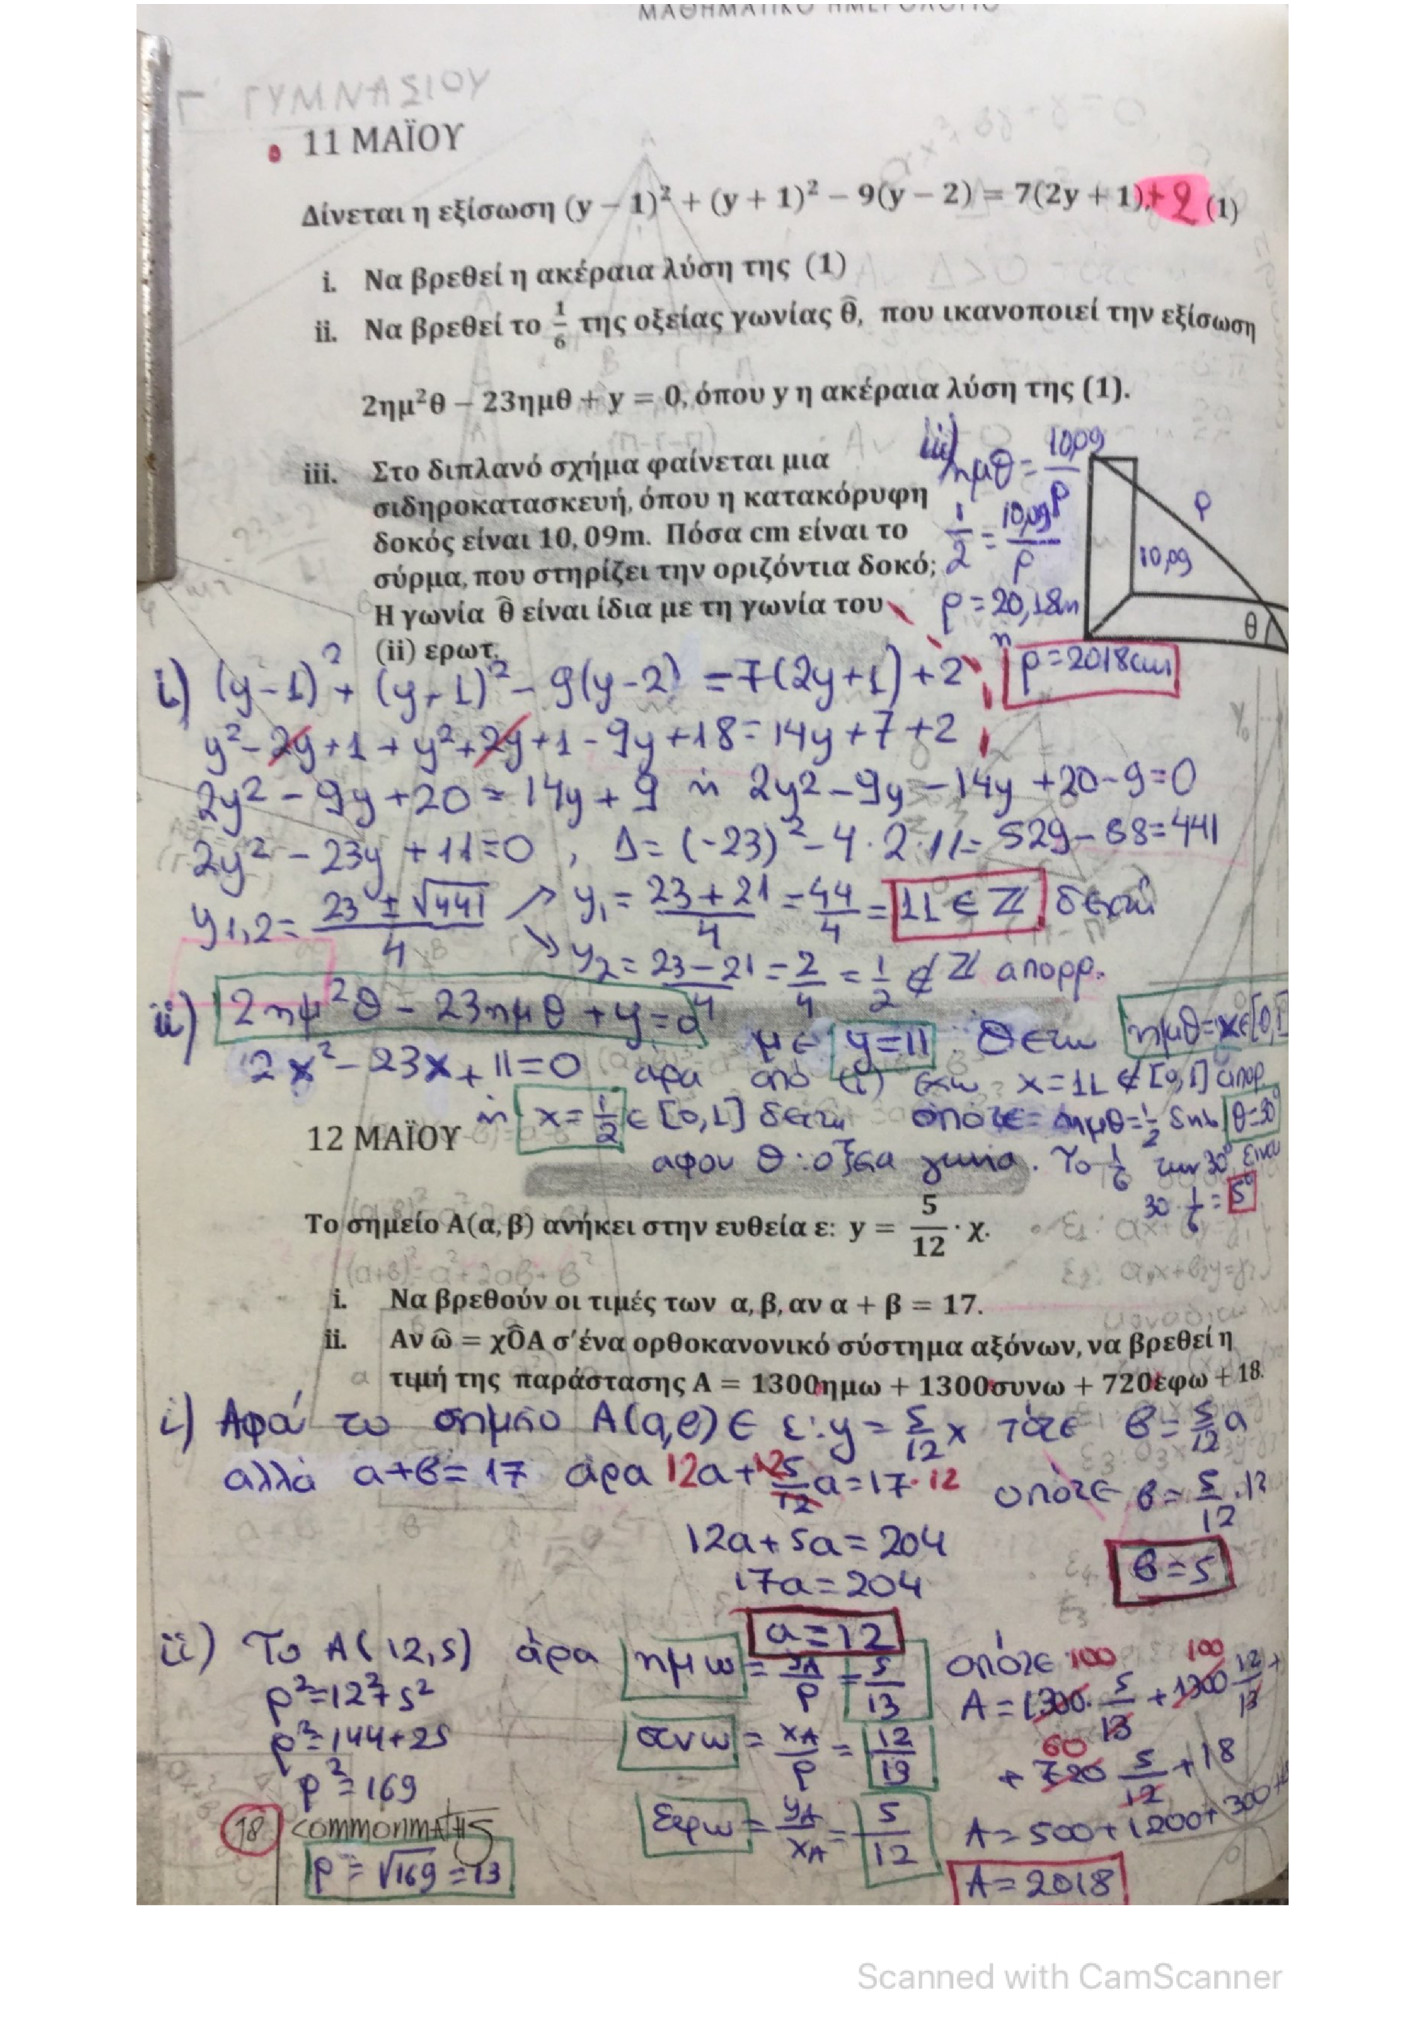 ΜΑΘΗΜΑΤΙΚΟ ΗΜΕΡΟΛΟΓΙΟ
Γ ΓΥΜΝΑΣΙΟΥ
11 ΜΑΪΟΥ
Δίνεται η εξίσωση (y − 1)² + (y + 1)² − 9(y − 2) = 7(2y + 1) + 2 (1)
i. Να βρεθεί η ακέραια λύση της (1)
ii. Να βρεθεί το 1/6 της οξείας γωνίας θ̂, που ικανοποιεί την εξίσωση
2ημ²θ − 23ημθ + y = 0, όπου y η ακέραια λύση της (1).
iii. Στο διπλανό σχήμα φαίνεται μια
σιδηροκατασκευή, όπου η κατακόρυφη
δοκός είναι 10,09m. Πόσα cm είναι το
σύρμα, που στηρίζει την οριζόντια δοκό;
Η γωνία θ̂ είναι ίδια με τη γωνία του
(ii) ερωτ.
iii) ημθ = 10,09/ρ
1/2 = 10,09/ρ
ρ = 20,18m
ή
ρ = 2018cm
ρ
10,09
θ
i) (y-1)² + (y+1)² - 9(y-2) = 7(2y+1)+2
y² - 2y + 1 + y² + 2y + 1 - 9y + 18 = 14y + 7 + 2
2y² - 9y + 20 = 14y + 9 ή 2y² - 9y - 14y + 20 - 9 = 0
2y² - 23y + 11 = 0 , Δ = (-23)² - 4·2·11 = 529 - 88 = 441
y1,2 = 23 ± √441 / 4 ↗ y₁ = 23+21/4 = 44/4 = 11 ∈ ℤ δεκτή
↘ y₂ = 23-21/4 = 2/4 = 1/2 ∉ ℤ απορρ.
ii) 2ημ²θ - 23ημθ + y = 0 με y = 11 θέτω ημθ = x ∈ [0,1]
2x² - 23x + 11 = 0 άρα από (i) έχω x = 11 ∉ [0,1] απορ
ή x = 1/2 ∈ [0,1] δεκτή οπότε ημθ = 1/2 δηλ θ = 30°
αφού θ : οξεία γωνία. Το 1/6 των 30° είναι
30 · 1/6 = 5°
12 ΜΑΪΟΥ
Το σημείο Α(α, β) ανήκει στην ευθεία ε: y = 5/12 · χ.
i. Να βρεθούν οι τιμές των α, β, αν α + β = 17.
ii. Αν ω̂ = χÔΑ σ'ένα ορθοκανονικό σύστημα αξόνων, να βρεθεί η
τιμή της παράστασης Α = 1300ημω + 1300συνω + 720εφω + 18.
i) Αφού το σημείο Α(α,β) ∈ ε: y = 5/12 x τότε β = 5/12 α
αλλά α+β = 17 άρα 12α + 12 5/12 α = 17·12 οπότε β = 5/12 · 12
12α + 5α = 204
17α = 204
β = 5
α = 12
ii) Το Α(12,5) άρα ημω = yA/ρ = 5/13 οπότε
ρ² = 12² + 5²
100 100
Α = 1300 · 5/13 + 1300 12/13 +
ρ² = 144 + 25
συνω = xA/ρ = 12/13
60
+ 720 5/12 + 18
ρ² = 169
εφω = yA/xA = 5/12
Α = 500 + 1200 + 300 +
18 COMMONMATHS
ρ = √169 = 13
Α = 2018
Scanned with CamScanner